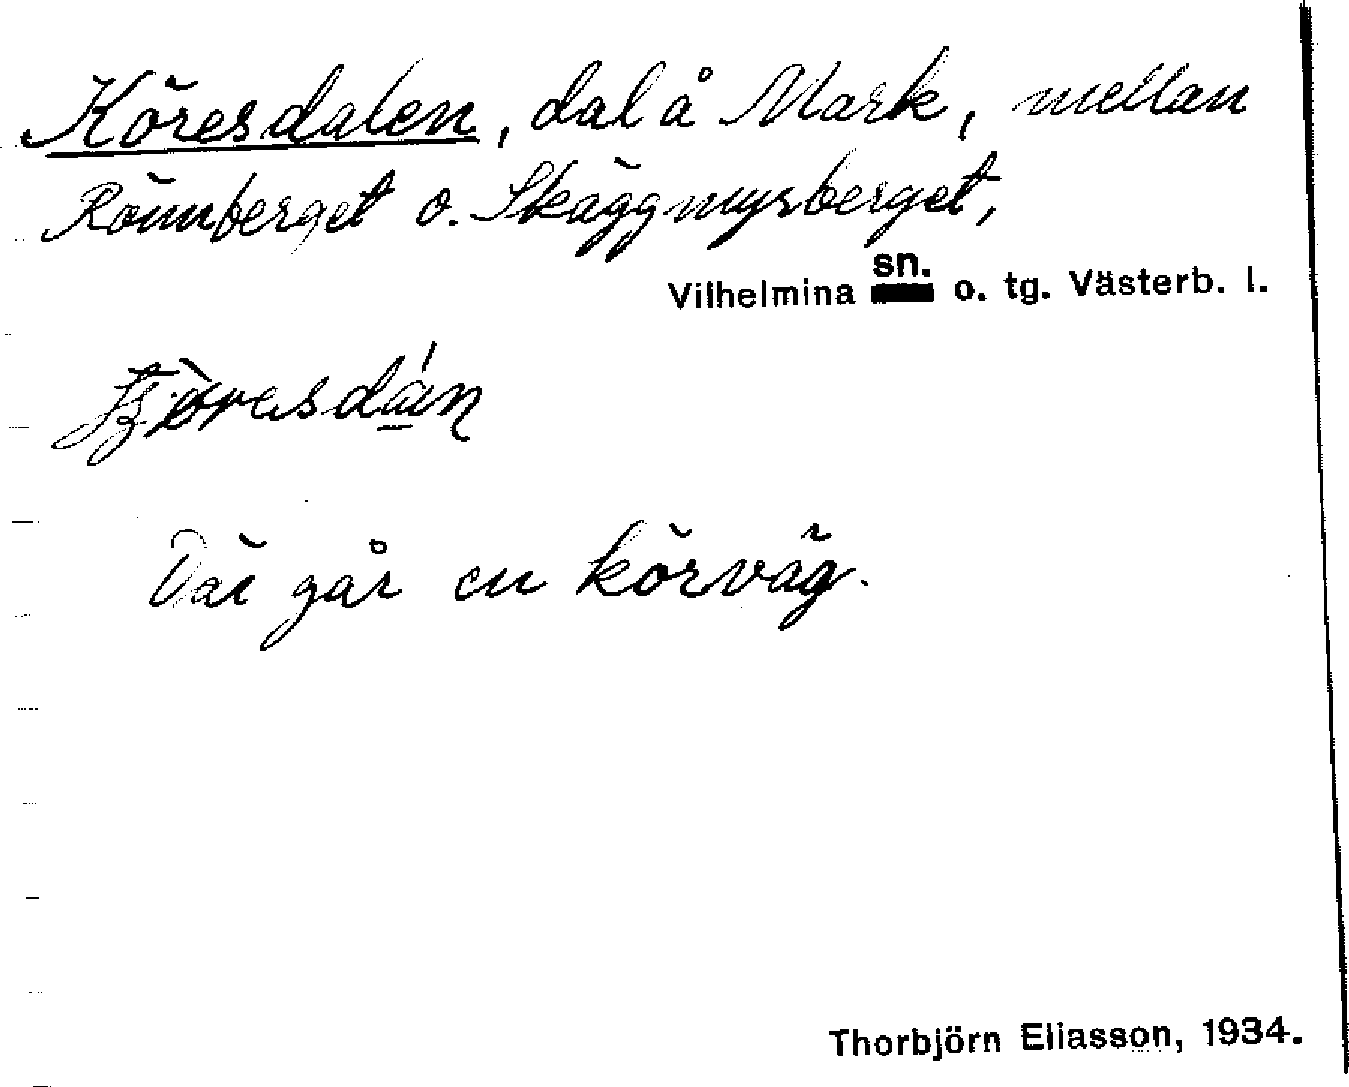 Köresdalen, dal å Mark, mellan
Rönnberget o. Skäggmyrberget,
Vilhelmina sn. o. tg. Västerb. l.
Där går en körväg.
Thorbjörn Eliasson, 1934.